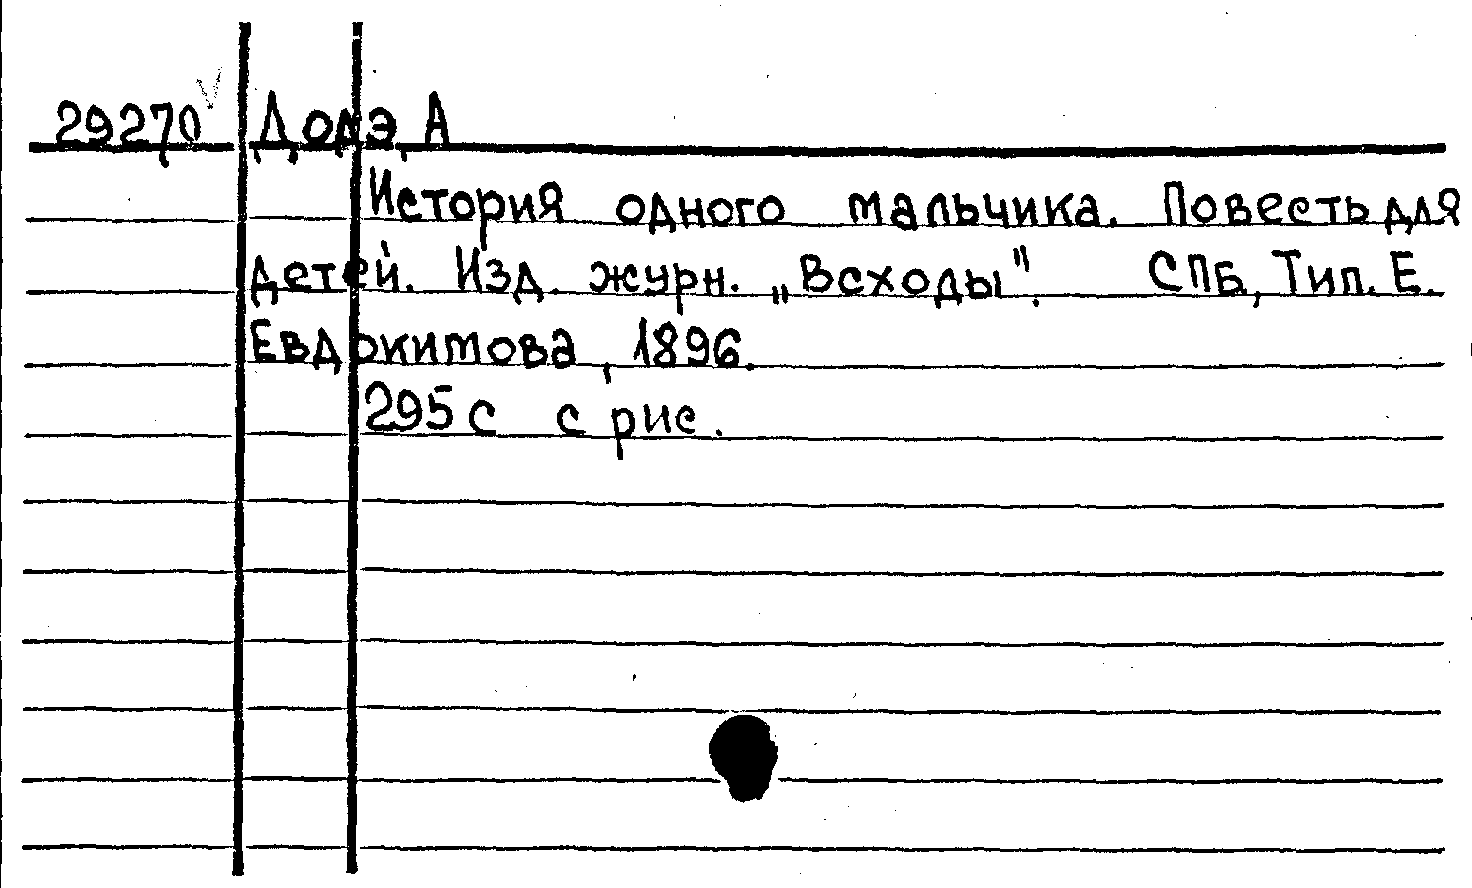 29270 Додэ, А
История одного мальчика. Повесть для
детей. Изд. журн. „Всходы". СПБ, Тип. Е.
Евдокимова, 1896.
295 с с рис.